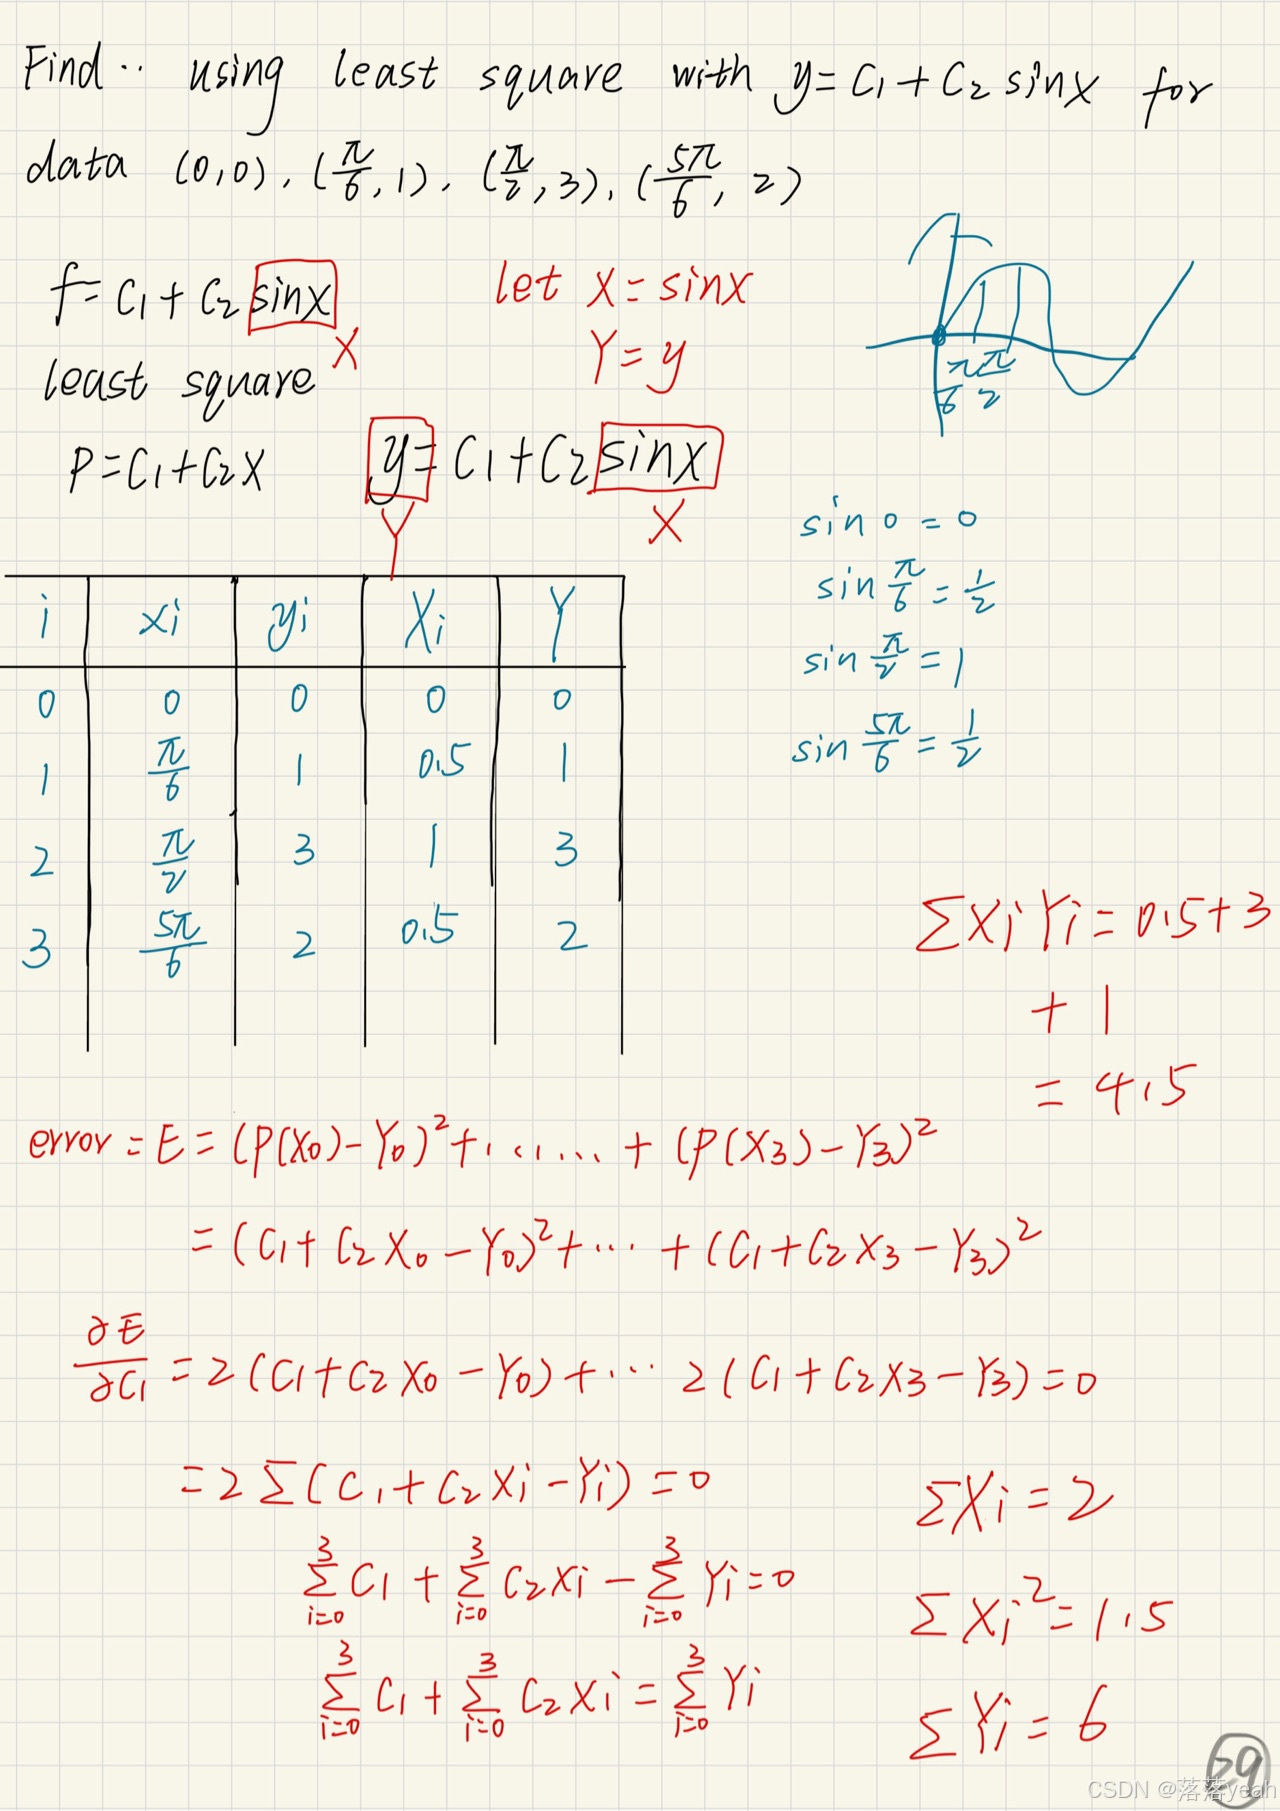 Find ·· using least square with y=C₁+C₂ sinx for
data (0,0), (π/6, 1), (π/2, 3), (5π/6, 2)
f=C₁+C₂ sinx
X
let X=sinx
Y=y
least square
P=C₁+C₂X
y=C₁+C₂ sinx
Y X
π/6 π/2
sin 0 = 0
sin π/6 = 1/2
sin π/2 = 1
sin 5π/6 = 1/2
i xi yi Xi Y
0 0 0 0 0
1 π/6 1 0.5 1
2 π/2 3 1 3
3 5π/6 2 0.5 2
ΣXiYi=0.5+3
+1
=4.5
error=E=(P(X₀)-Y₀)²+......+(P(X₃)-Y₃)²
=(C₁+C₂X₀-Y₀)²+···+(C₁+C₂X₃-Y₃)²
∂E/∂C₁=2(C₁+C₂X₀-Y₀)+··· 2(C₁+C₂X₃-Y₃)=0
=2Σ(C₁+C₂Xi-Yi)=0
Σ³ᵢ₌₀ C₁+Σ³ᵢ₌₀ C₂Xi-Σ³ᵢ₌₀ Yi=0
Σ³ᵢ₌₀ C₁+Σ³ᵢ₌₀ C₂Xi=Σ³ᵢ₌₀ Yi
ΣXi=2
ΣXi²=1.5
ΣYi=6
29
CSDN @落落yeah